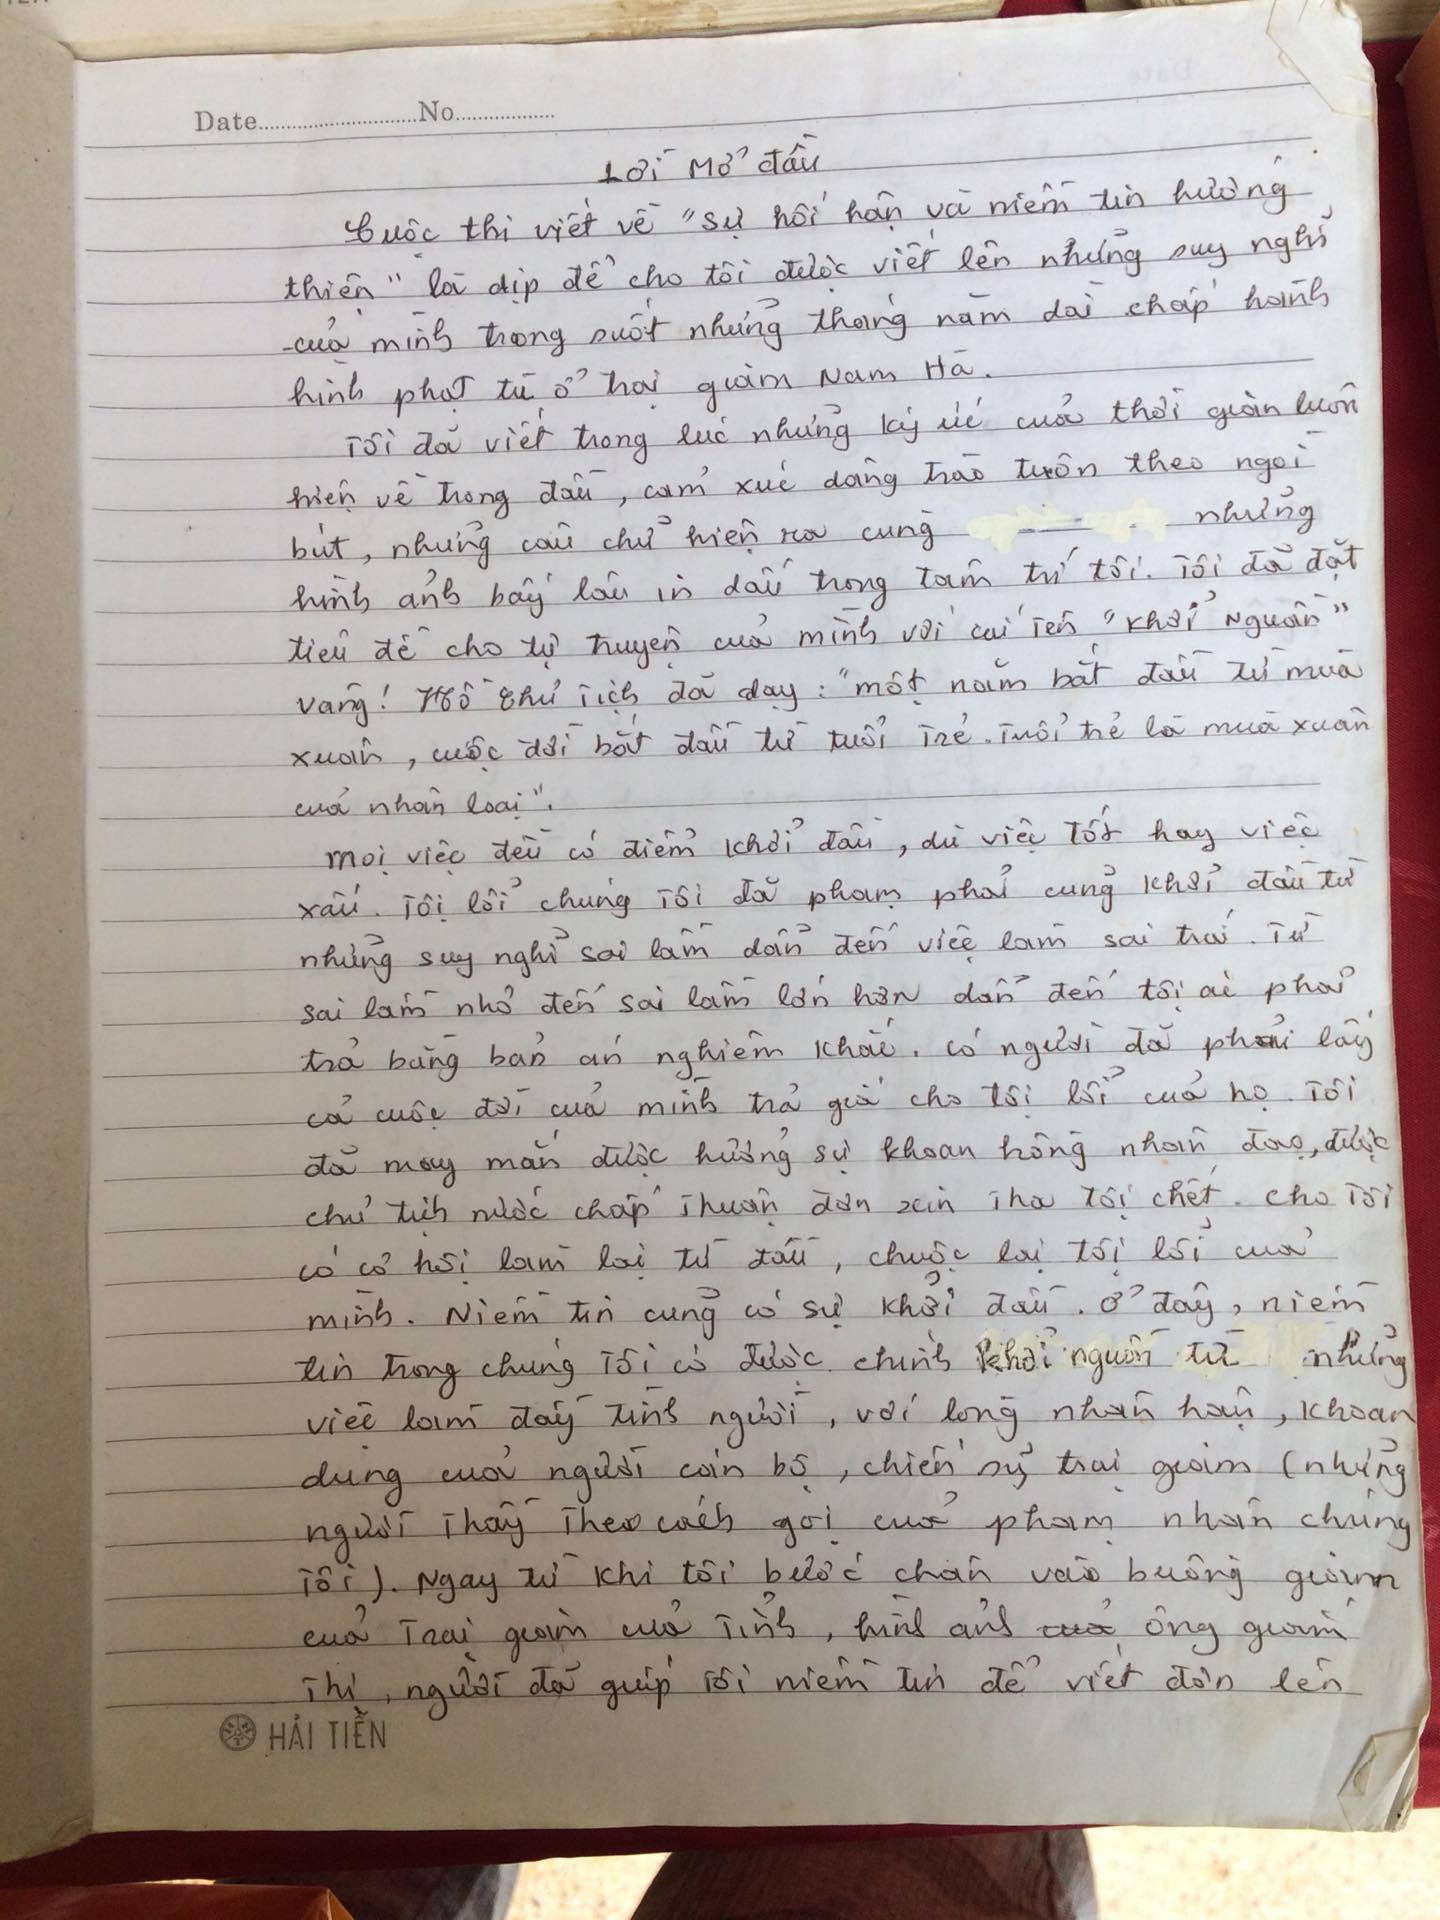 Date..............No..............
Lời Mở đầu
Cuộc thi viết về "sự hối hận và niềm tin hướng
thiện" là dịp để cho tôi được viết lên những suy nghĩ
của mình trong suốt những tháng năm dài chấp hành
hình phạt tù ở trại giam Nam Hà.
Tôi đã viết trong lúc những ký ức của thời gian luôn
hiện về trong đầu, cảm xúc dâng trào tuôn theo ngòi
bút, những câu chữ hiện ra cùng những
hình ảnh bấy lâu in dấu trong tâm trí tôi. Tôi đã đặt
tiêu đề cho tự truyện của mình với cái tên "Khởi Nguồn"
vâng! Hồ Chủ Tịch đã dạy: "một năm bắt đầu từ mùa
xuân, cuộc đời bắt đầu từ tuổi Trẻ. Tuổi trẻ là mùa xuân
của nhân loại".
Mọi việc đều có điểm khởi đầu, dù việc tốt hay việc
xấu. Tội lỗi chúng Tôi đã phạm phải cũng khởi đầu từ
những suy nghĩ sai lầm dẫn đến việc làm sai trái. Từ
sai lầm nhỏ đến sai lầm lớn hơn dẫn đến tội ác phải
trả bằng bản án nghiêm khắc. Có người đã phải lấy
cả cuộc đời của mình trả giá cho tội lỗi của họ. Tôi
đã may mắn được hưởng sự khoan hồng nhân đạo, được
chủ tịch nước chấp thuận đơn xin Tha tội chết. Cho Tôi
có cơ hội làm lại từ đầu, chuộc lại tội lỗi của
mình. Niềm tin cũng có sự khởi đầu. Ở đây, niềm
tin trong chúng Tôi có được chính khởi nguồn từ những
việc làm đầy tình người, với lòng nhân hậu, khoan
dung của người cán bộ, chiến sỹ trại giam (những
người Thầy Theo cách gọi của phạm nhân chúng
Tôi). Ngay từ khi tôi bước chân vào buồng giam
của Trại giam của Tỉnh, hình ảnh của ông giám
Thị, người đã giúp Tôi niềm tin để viết đơn lên
HẢI TIẾN